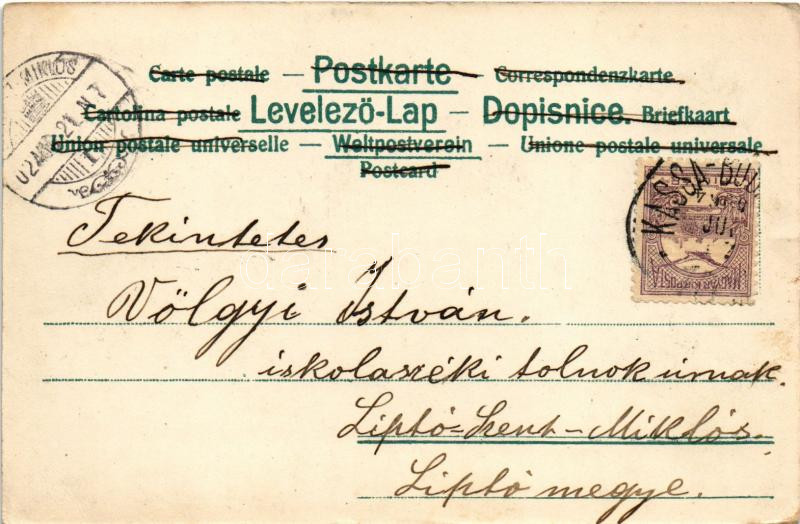 Carte postale — Postkarte — Correspondenzkarte.
Cartolina postale Levelezö-Lap — Dopisnice. Briefkaart
Union postale universelle — Weltpostverein — Unione postale universale
Postcard
MIKLÓS
KASSA-BUD
JUL
MAGYAR KIR. POSTA
Tekintetes
Völgyi István.
iskolaszéki tolnok úrnak.
Liptó-Szent-Miklós.
Liptó megye.
darabanth